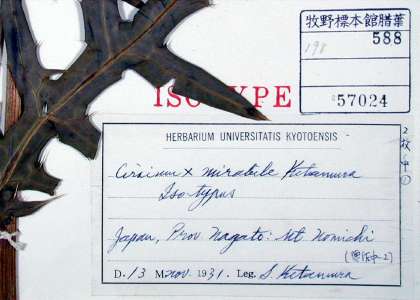 牧野標本館腊葉
198 588
57024
ISOTYPE
HERBARIUM UNIVERSITATIS KYOTOENSIS
Cirsium x mirabile Kitamura
Isotypus
Japan, Prov. Nagato: Mt. Nomichi
D. 13 M. Nov. 1931. Leg. S. Kitamura
2枚中①